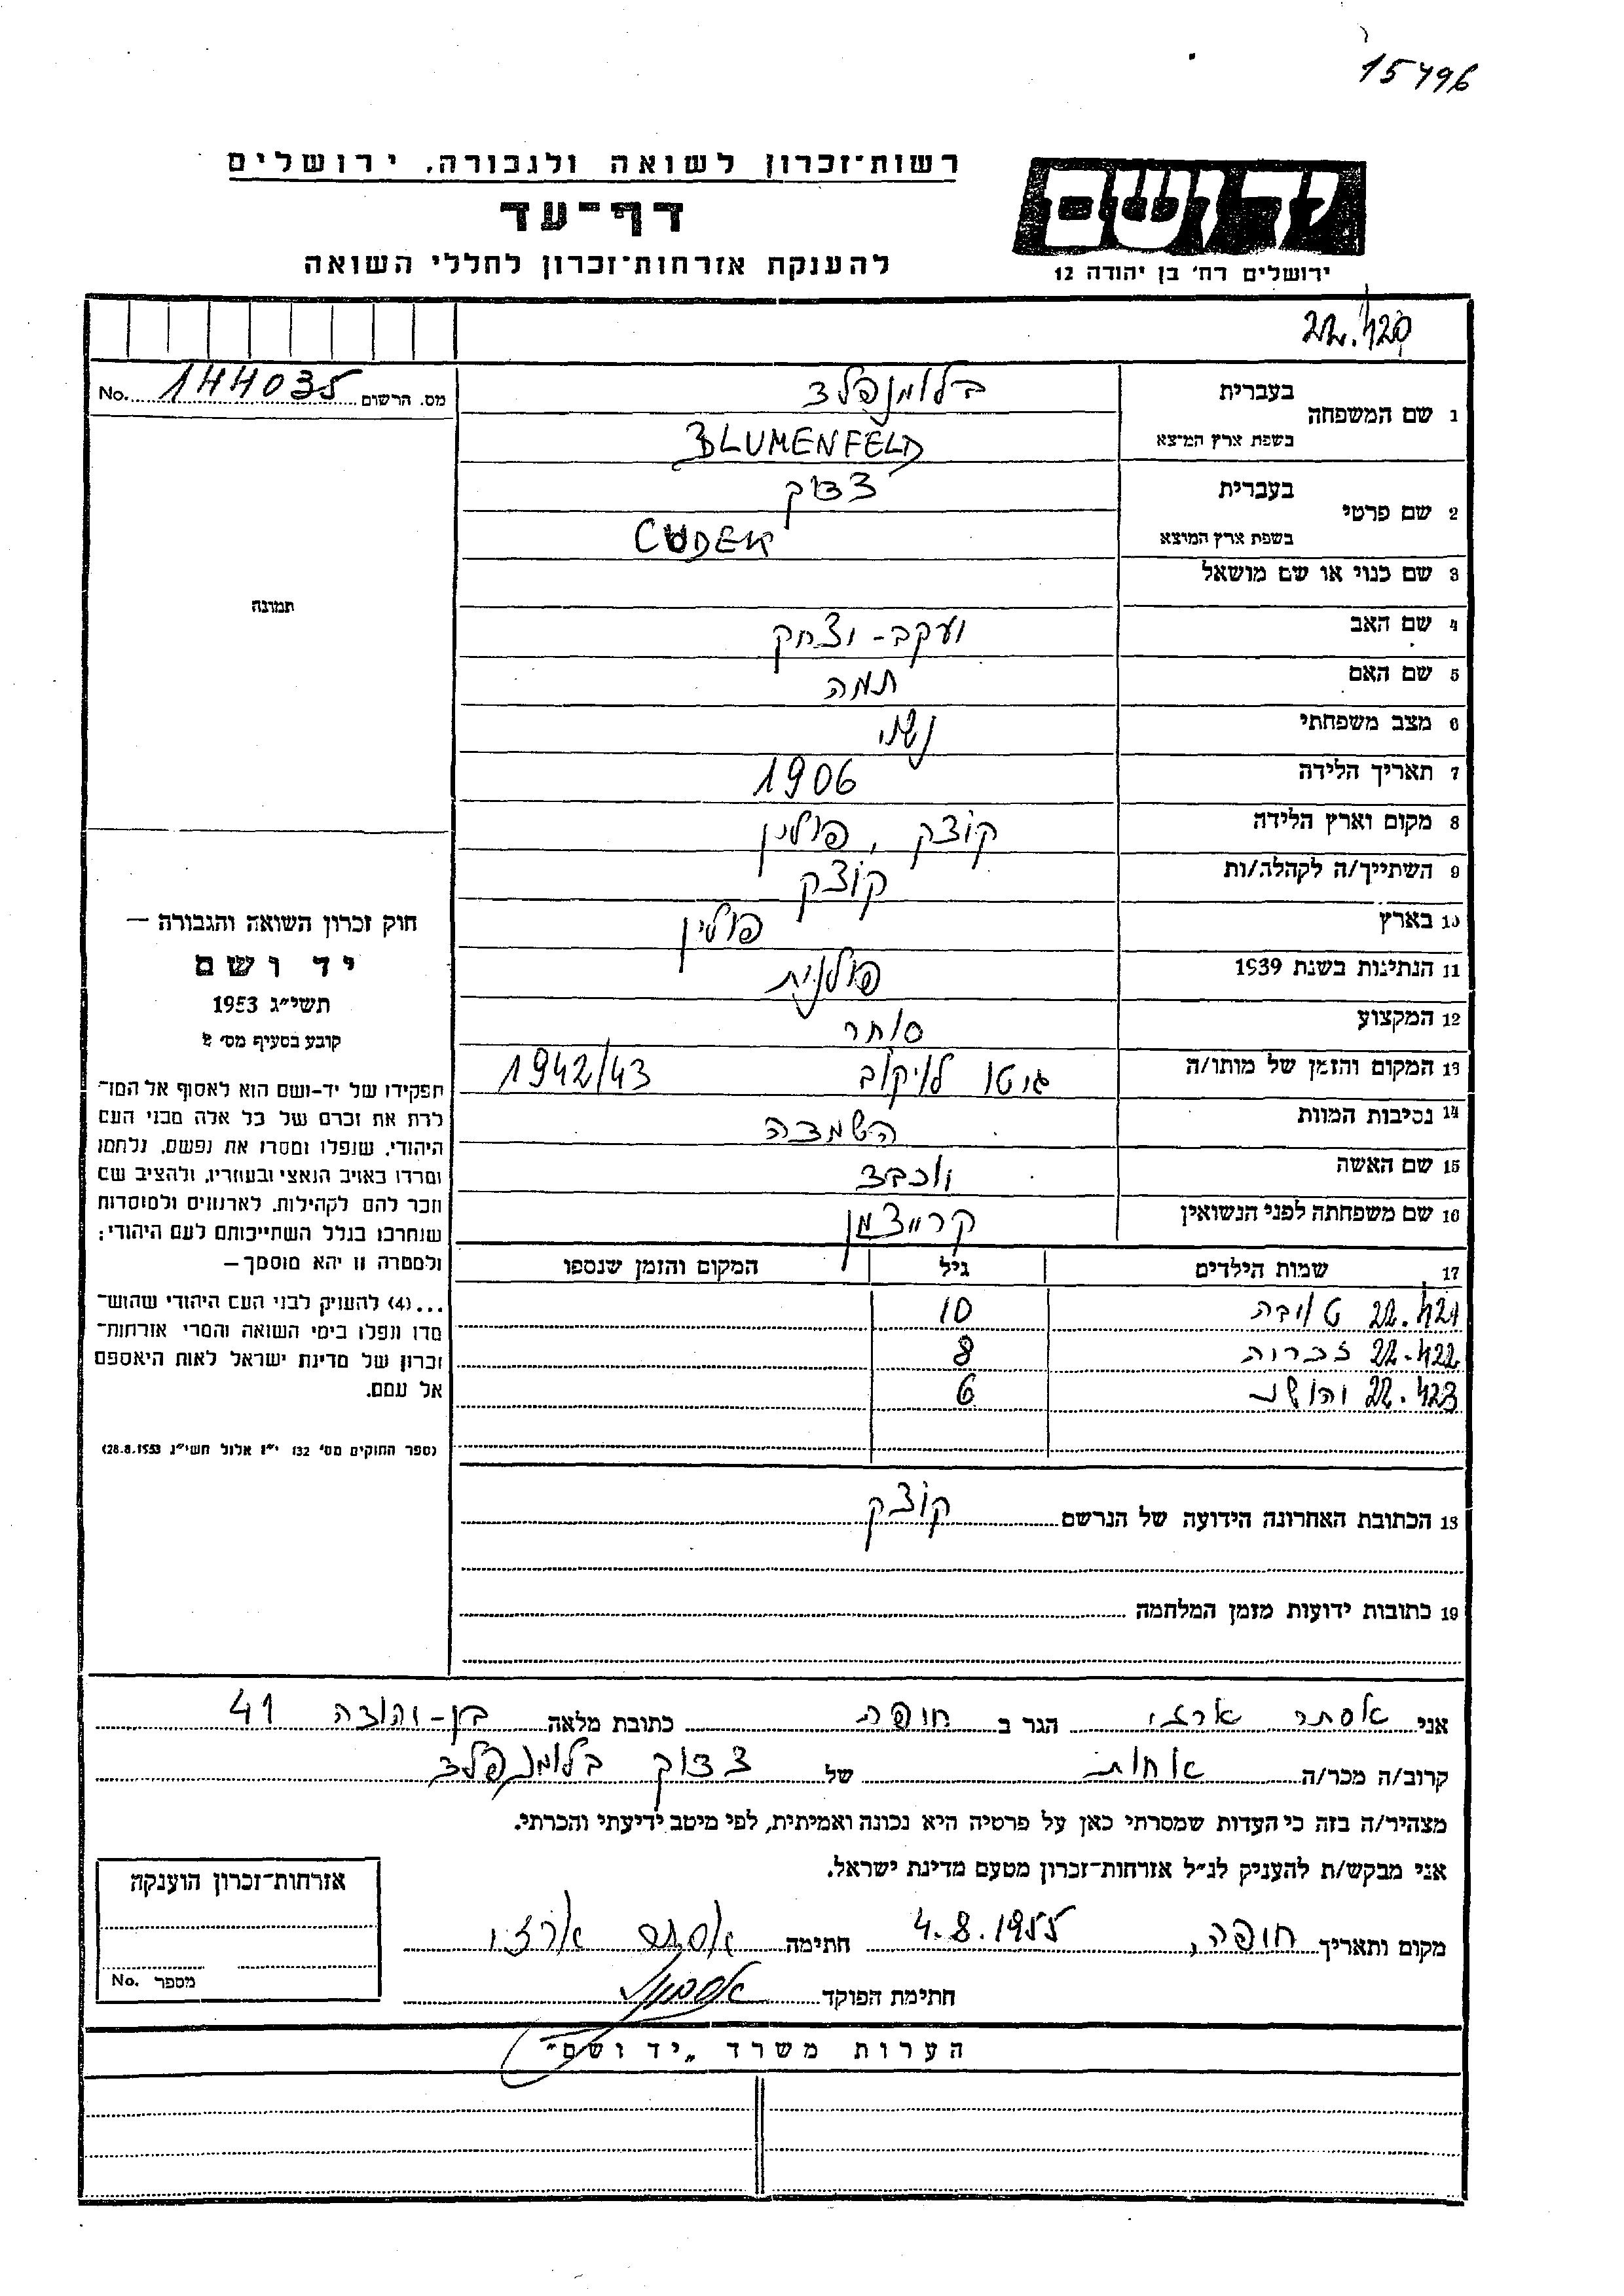 15496
רשות־זכרון לשואה ולגבורה, ירושלים
דף־עד
להענקת אזרחות־זכרון לחללי השואה
יד ושם
ירושלים רח' בן יהודה 12
22.420
מס. הרשום 144035 No.
1 שם המשפחה
בעברית בלומנפלד
בשפת ארץ המוצא BLUMENFELD
2 שם פרטי
בעברית צדוק
בשפת ארץ המוצא CUDEK
3 שם כנוי או שם מושאל
4 שם האב יעקב-יצחק
5 שם האם תמה
6 מצב משפחתי נשוי
7 תאריך הלידה 1906
8 מקום וארץ הלידה קוצק, פולין
9 השתייך/ה לקהלה/ות קוצק
10 בארץ פולין
11 הנתינות בשנת 1939 פולנית
12 המקצוע סוחר
13 המקום והזמן של מותו/ה גיטו לויקוב 1942/43
14 נסיבות המוות השמדה
15 שם האשה יוכבד
16 שם משפחתה לפני הנשואין
17 שמות הילדים גיל המקום והזמן שנספו
22.421 טובה 10
22.422 זכרות 8
22.423 יהושע 6
18 הכתובת האחרונה הידועה של הנרשם קוצק
19 כתובות ידועות מזמן המלחמה
תמונה
חוק זכרון השואה והגבורה —
יד ושם
תשי״ג 1953
קובע בסעיף מס' 2
תפקידו של יד-ושם הוא לאסוף אל המו־
לדת את זכרם של כל אלה מבני העם
היהודי, שנפלו ומסרו את נפשם, נלחמו
ומרדו באויב הנאצי ובעוזריו, ולהציב שם
וזכר להם לקהילות, לארגונים ולמוסדות
שנחרבו בגלל השתייכותם לעם היהודי;
ולמטרה זו יהא מוסמך —
...(4) להעניק לבני העם היהודי שהוש־
מדו ונפלו בימי השואה והמרי אזרחות־
זכרון של מדינת ישראל לאות היאספם
אל עמם.
(ספר החוקים מס' 132 י״ז אלול תשי״ג 28.8.1953)
אני אסתר ארזי הגר ב חיפה כתובת מלאה בן-יהודה 41
קרוב/ה מכר/ה אחות של צדוק בלומנפלד
מצהיר/ה בזה כי העדות שמסרתי כאן על פרטיה היא נכונה ואמיתית, לפי מיטב ידיעתי והכרתי.
אני מבקש/ת להעניק לנ״ל אזרחות־זכרון מטעם מדינת ישראל.
מקום ותאריך חיפה, 4.8.1955 חתימה אסתר ארזי
חתימת הפוקד
אזרחות־זכרון הוענקה
מספר No.
הערות משרד „יד ושם"